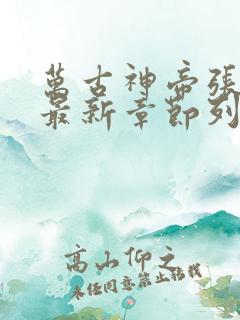 萬古神帝張
最新章節列
高山仰之
未经同意禁止转载